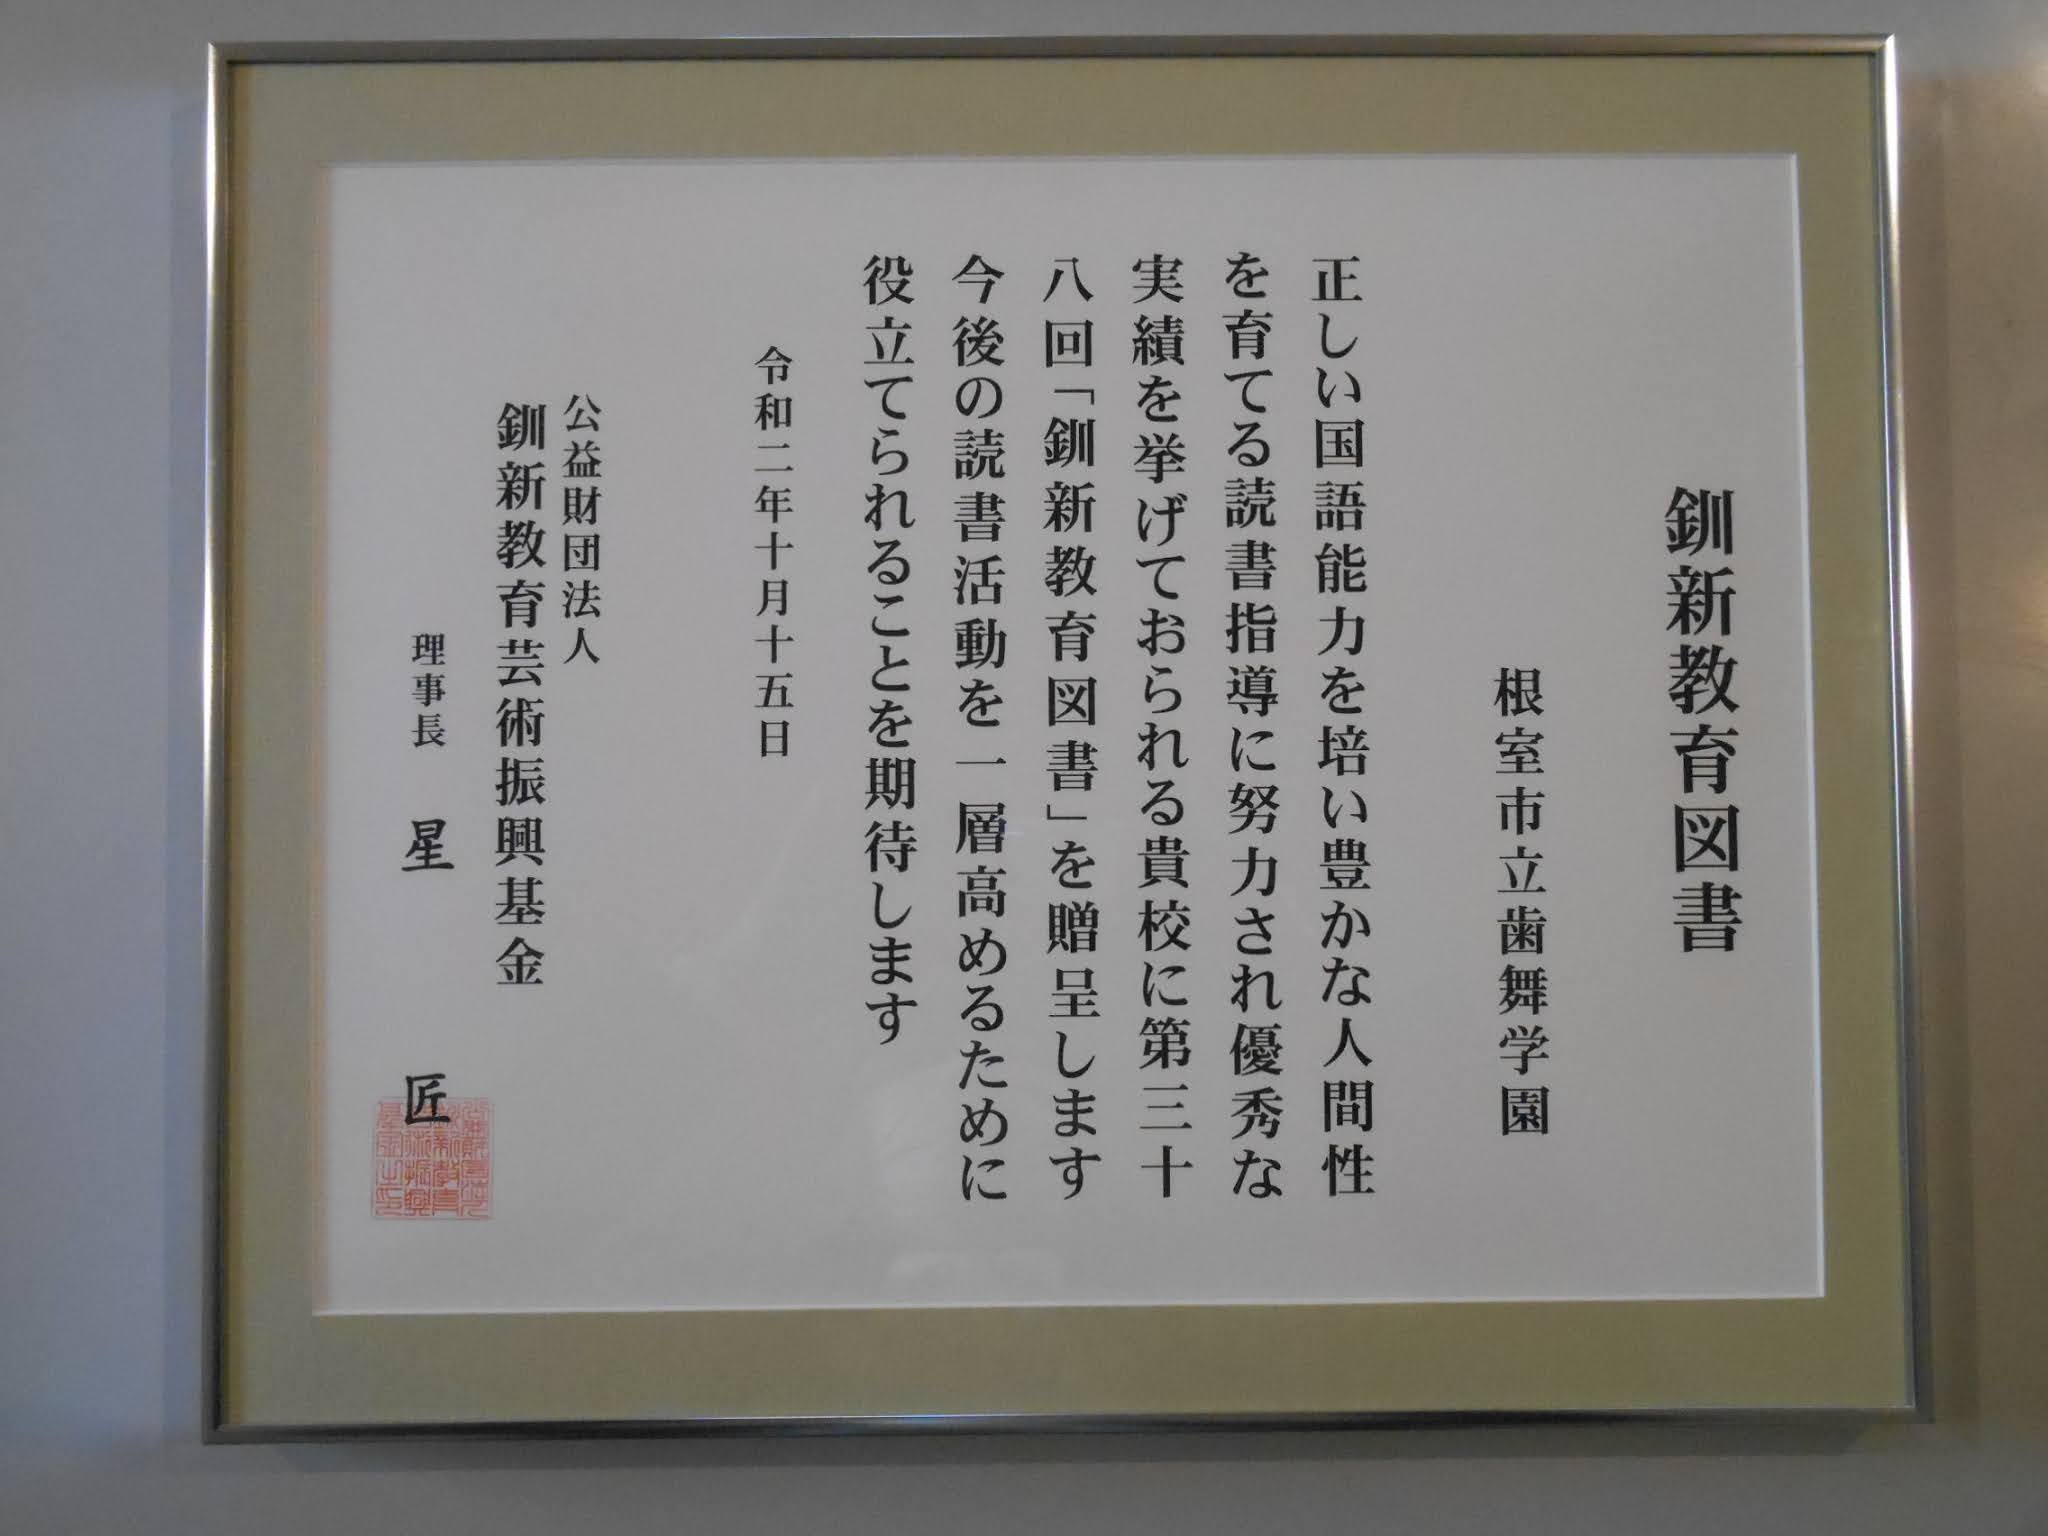 釧新教育図書
根室市立歯舞学園
正しい国語能力を培い豊かな人間性
を育てる読書指導に努力され優秀な
実績を挙げておられる貴校に第三十
八回「釧新教育図書」を贈呈します
今後の読書活動を一層高めるために
役立てられることを期待します
令和二年十月十五日
公益財団法人
釧新教育芸術振興基金
理事長 星 匠